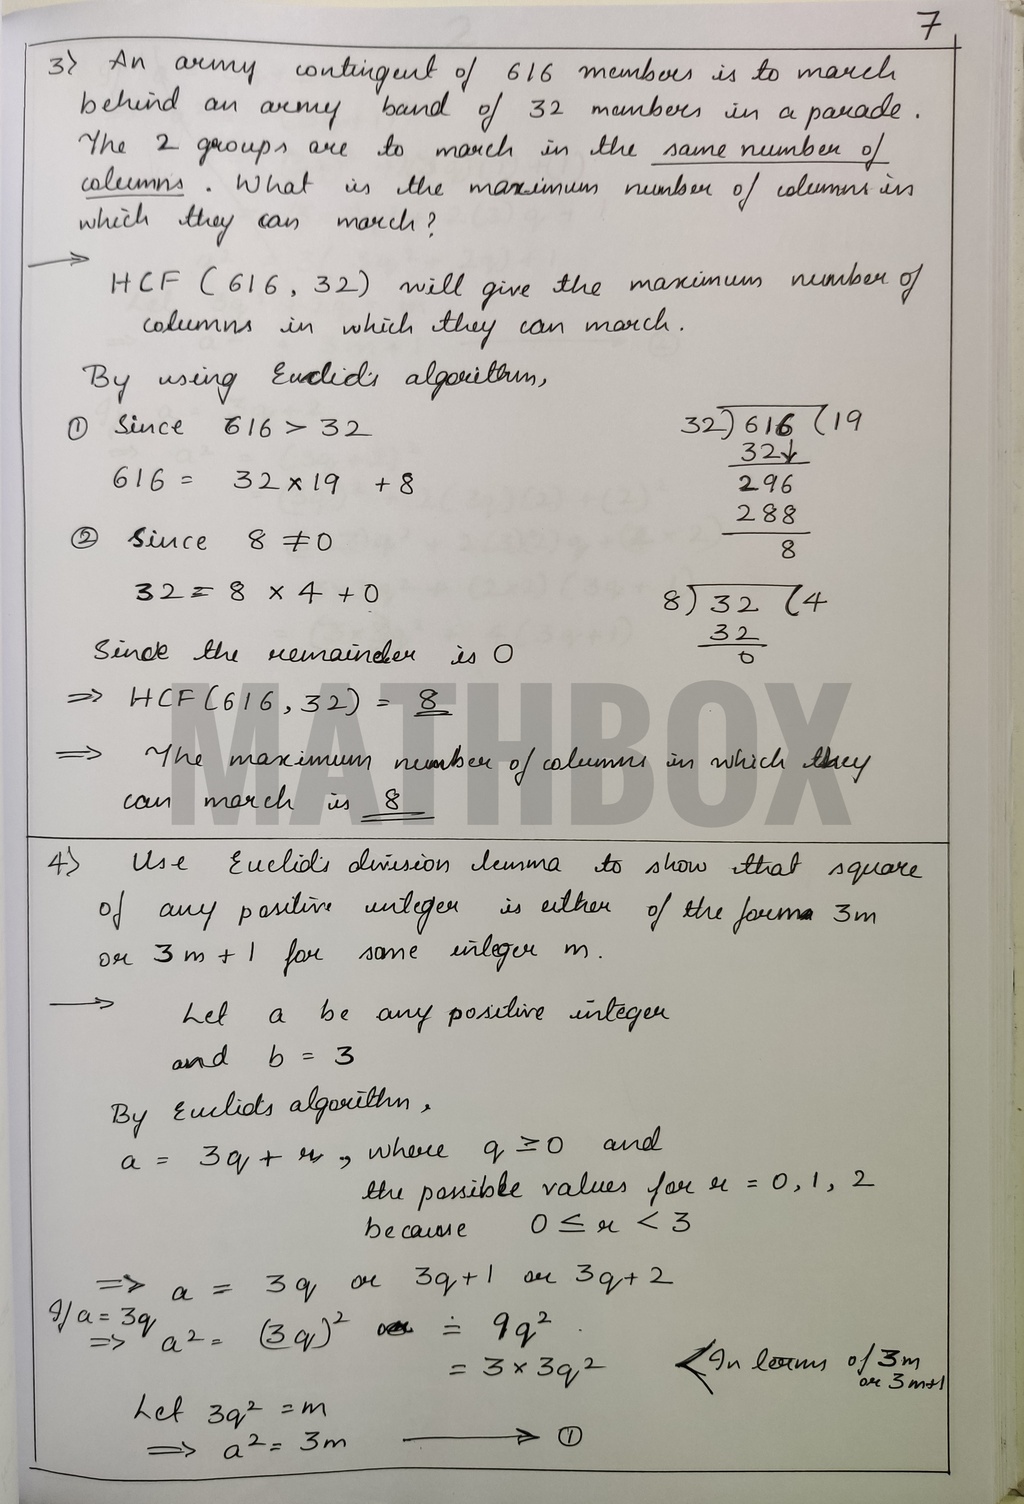 7
3) An army contingent of 616 members is to march
behind an army band of 32 members in a parade.
The 2 groups are to march in the same number of
columns. What is the maximum number of columns in
which they can march?
→
HCF (616, 32) will give the maximum number of
columns in which they can march.
By using Euclid's algorithm,
① Since 616 > 32
616 = 32 × 19 + 8
32)616(19
32↓
296
288
8
② Since 8 ≠ 0
32 = 8 × 4 + 0
8)32(4
32
0
Since the remainder is 0
⇒ HCF(616, 32) = 8
MATHBOX
⇒ The maximum number of columns in which they
can march is 8
4) Use Euclid's division lemma to show that square
of any positive integer is either of the form 3m
or 3m + 1 for some integer m.
→ Let a be any positive integer
and b = 3
By Euclid's algorithm,
a = 3q + r, where q ≥ 0 and
the possible values for r = 0, 1, 2
because 0 ≤ r < 3
⇒ a = 3q or 3q+1 or 3q+2
If a = 3q
⇒ a² = (3q)² = 9q²
= 3 × 3q²
< In terms of 3m
or 3m+1
Let 3q² = m
⇒ a² = 3m → ①